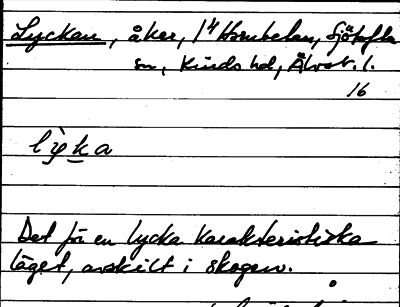 Lyckan, åker, 1/4 Hornbetan, Sjötofta
sn, Kinds hd, Älvsb. l.
16
lỳka
Det för en lycka karakteristiska
läget, avskilt i skogen.